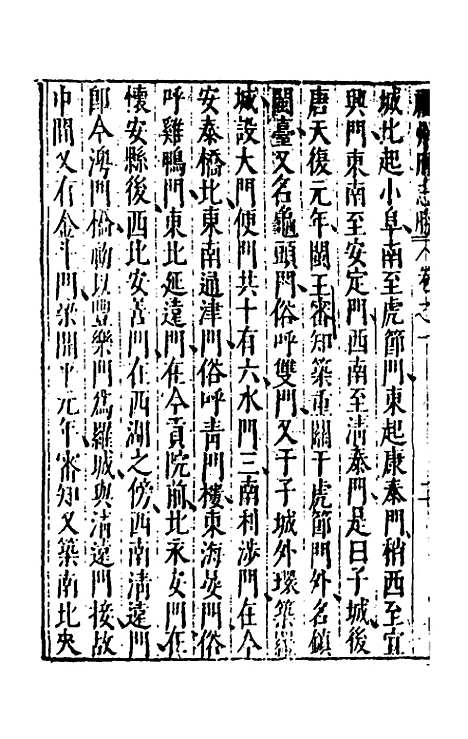 城北起小阜南至虎節門東起康泰門稍西至宜
興門東南至安定門西南至清泰門是曰子城後
唐天復元年閩王審知築重關于虎節門外名鎮
閩臺又名龜頭門俗呼雙門又于子城外環築羅
城設大門便門共十有六水門三南利涉門在今
安泰橋北東南通津門俗呼青門樓東海晏門俗
呼雞鴨門東北延遠門在今貢院前北永安門在
懷安縣後西北安善門在西湖之傍西南清遠門
郎今澳門橋初以豐樂門為羅城與清遠門接故
中間又有金斗門梁開平元年審知又築南北夾